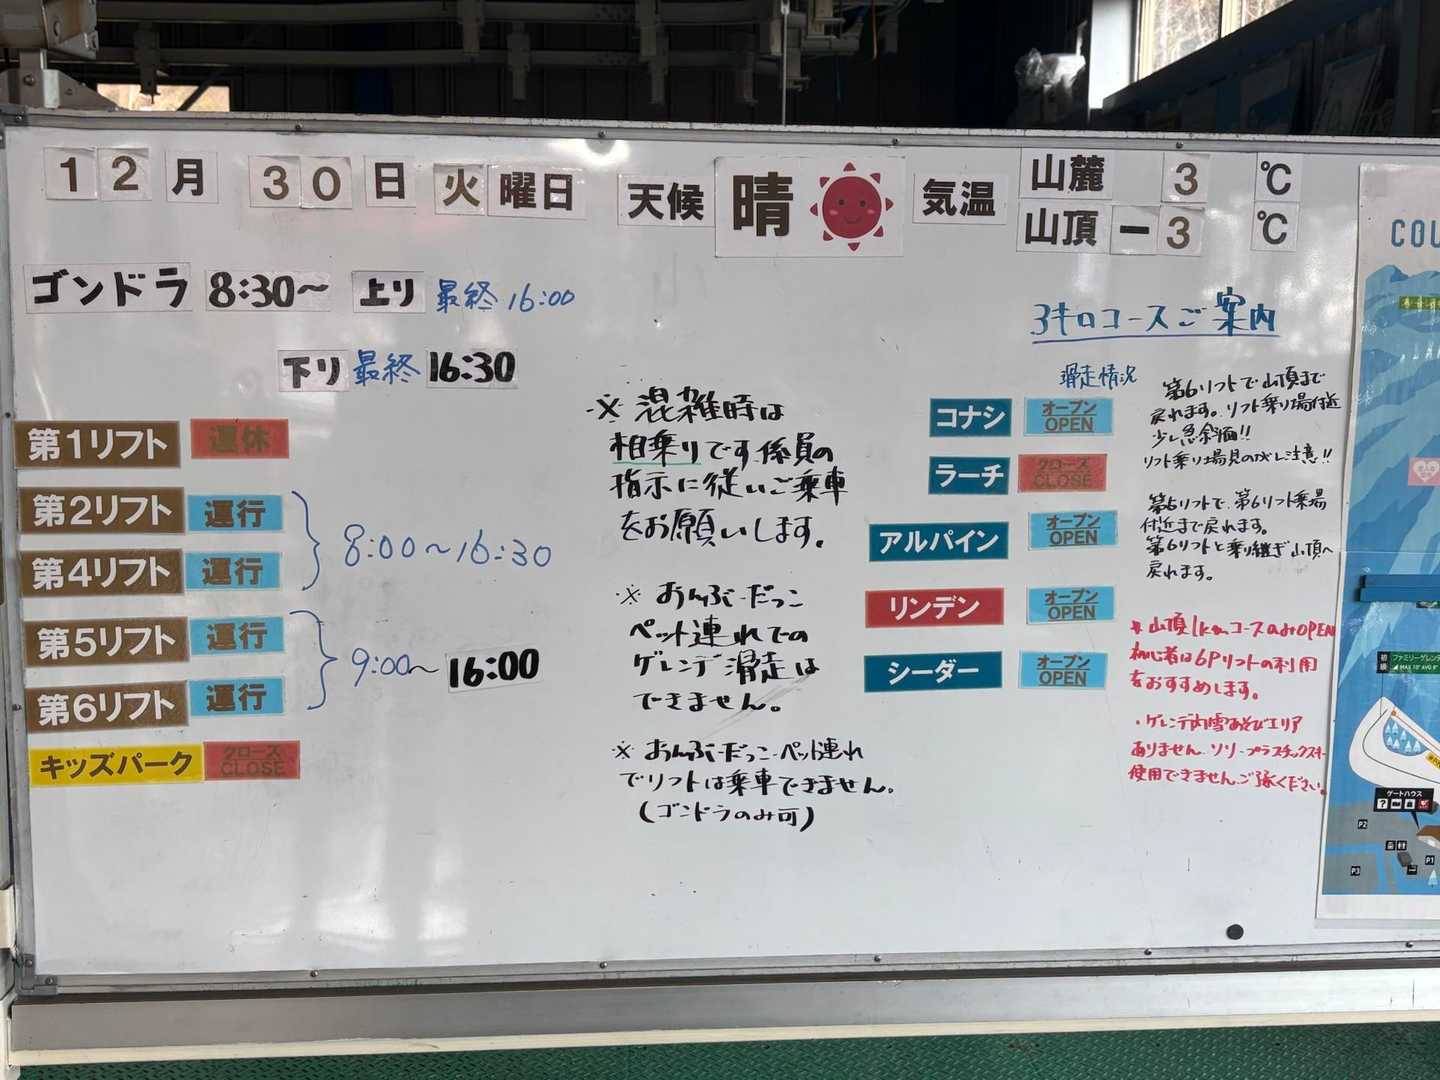 12月 30日 火曜日 天候 晴 気温 山麓 3 ℃
山頂 -3 ℃
ゴンドラ 8:30〜 上り 最終 16:00
下り 最終 16:30
第1リフト 運休
第2リフト 運行
第4リフト 運行
8:00〜16:30
第5リフト 運行
第6リフト 運行
9:00〜 16:00
キッズパーク クローズ CLOSE
※ 混雑時は
相乗りです.係員の
指示に従いご乗車
をお願いします。
※ おんぶ・だっこ
ペット連れでの
ゲレンデ滑走は
できません。
※ おんぶ・だっこ・ペット連れ
でリフトは乗車できません。
(ゴンドラのみ可)
3キロコースご案内
滑走情況
コナシ オープン OPEN
ラーチ クローズ CLOSE
アルパイン オープン OPEN
リンデン オープン OPEN
シーダー オープン OPEN
第6リフトで山頂まで
戻れます。リフト乗り場付近
少し急斜面!!
リフト乗り場見のがし注意!!
第5リフトで、第6リフト乗場
付近まで戻れます。
第6リフトと乗り継ぎ山頂へ
戻れます。
* 山頂1kmコースのみOPEN
初心者は6Pリフトの利用
をおすすめします。
・ゲレンデ内雪あそびエリア
ありません.ソリ・プラスチックスキー
使用できません.ご了承ください。
COU
初級
ファミリーゲレンデ
ゲートハウス
P2
P1
P3